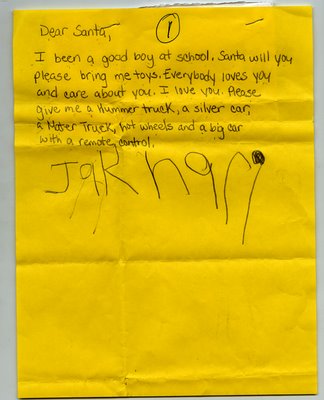 1
Dear Santa,
I been a good boy at school. Santa will you
please bring me toys. Everybody loves you
and care about you. I love you. Please
give me a Hummer truck, a silver car,
a Mater Truck, hot wheels and a big car
with a remote control.